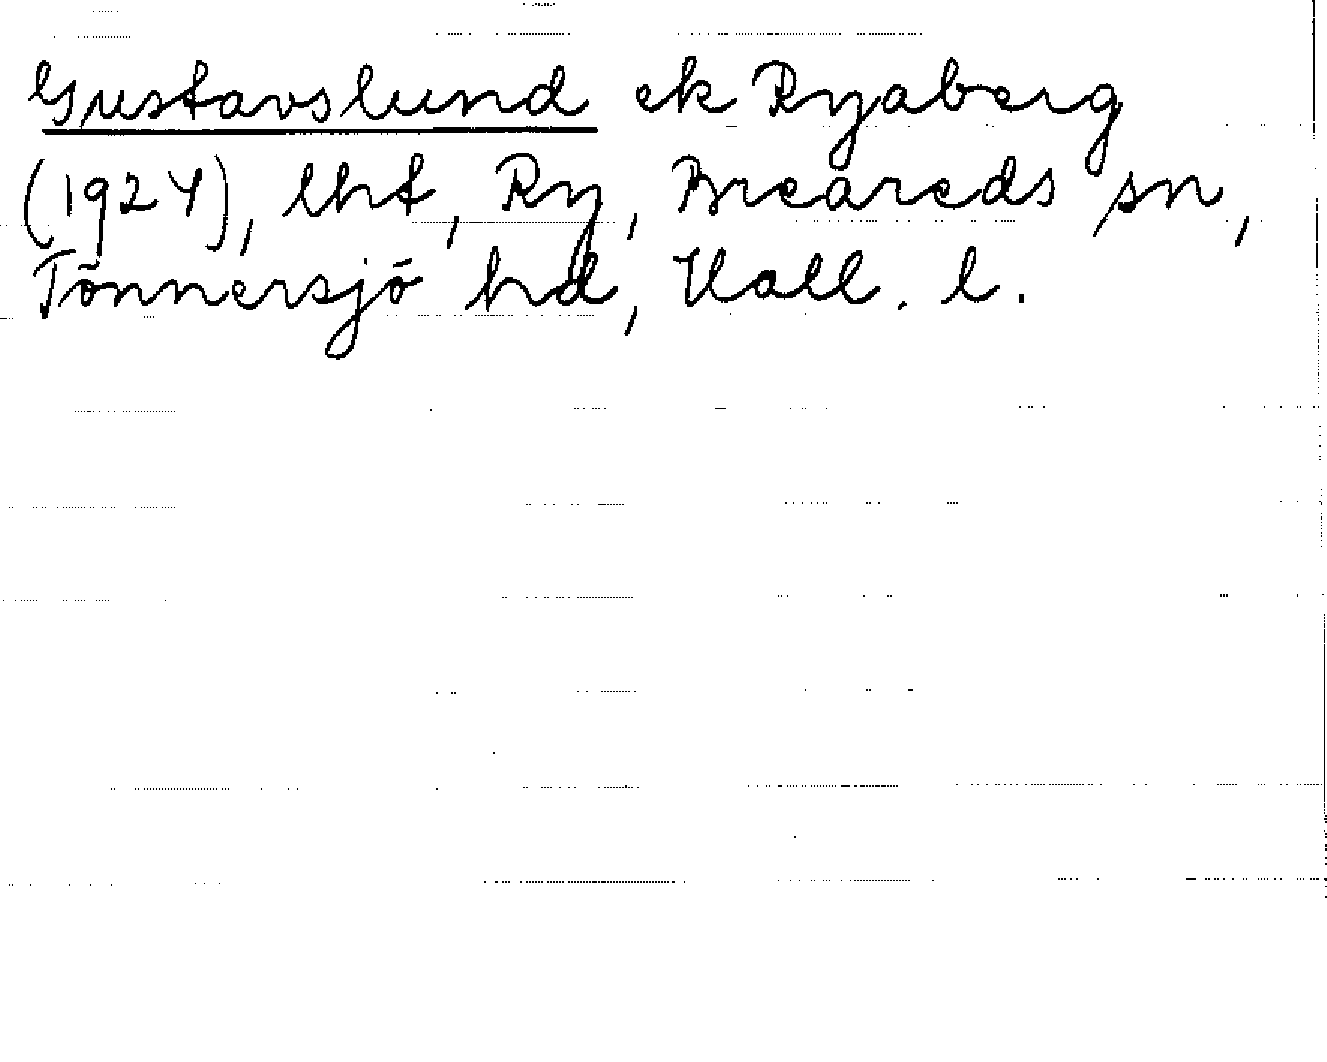 Gustavslund ek Ryaberg
(1924), lht, Ry, Breareds sn,
Tönnersjö hd, Hall. l.